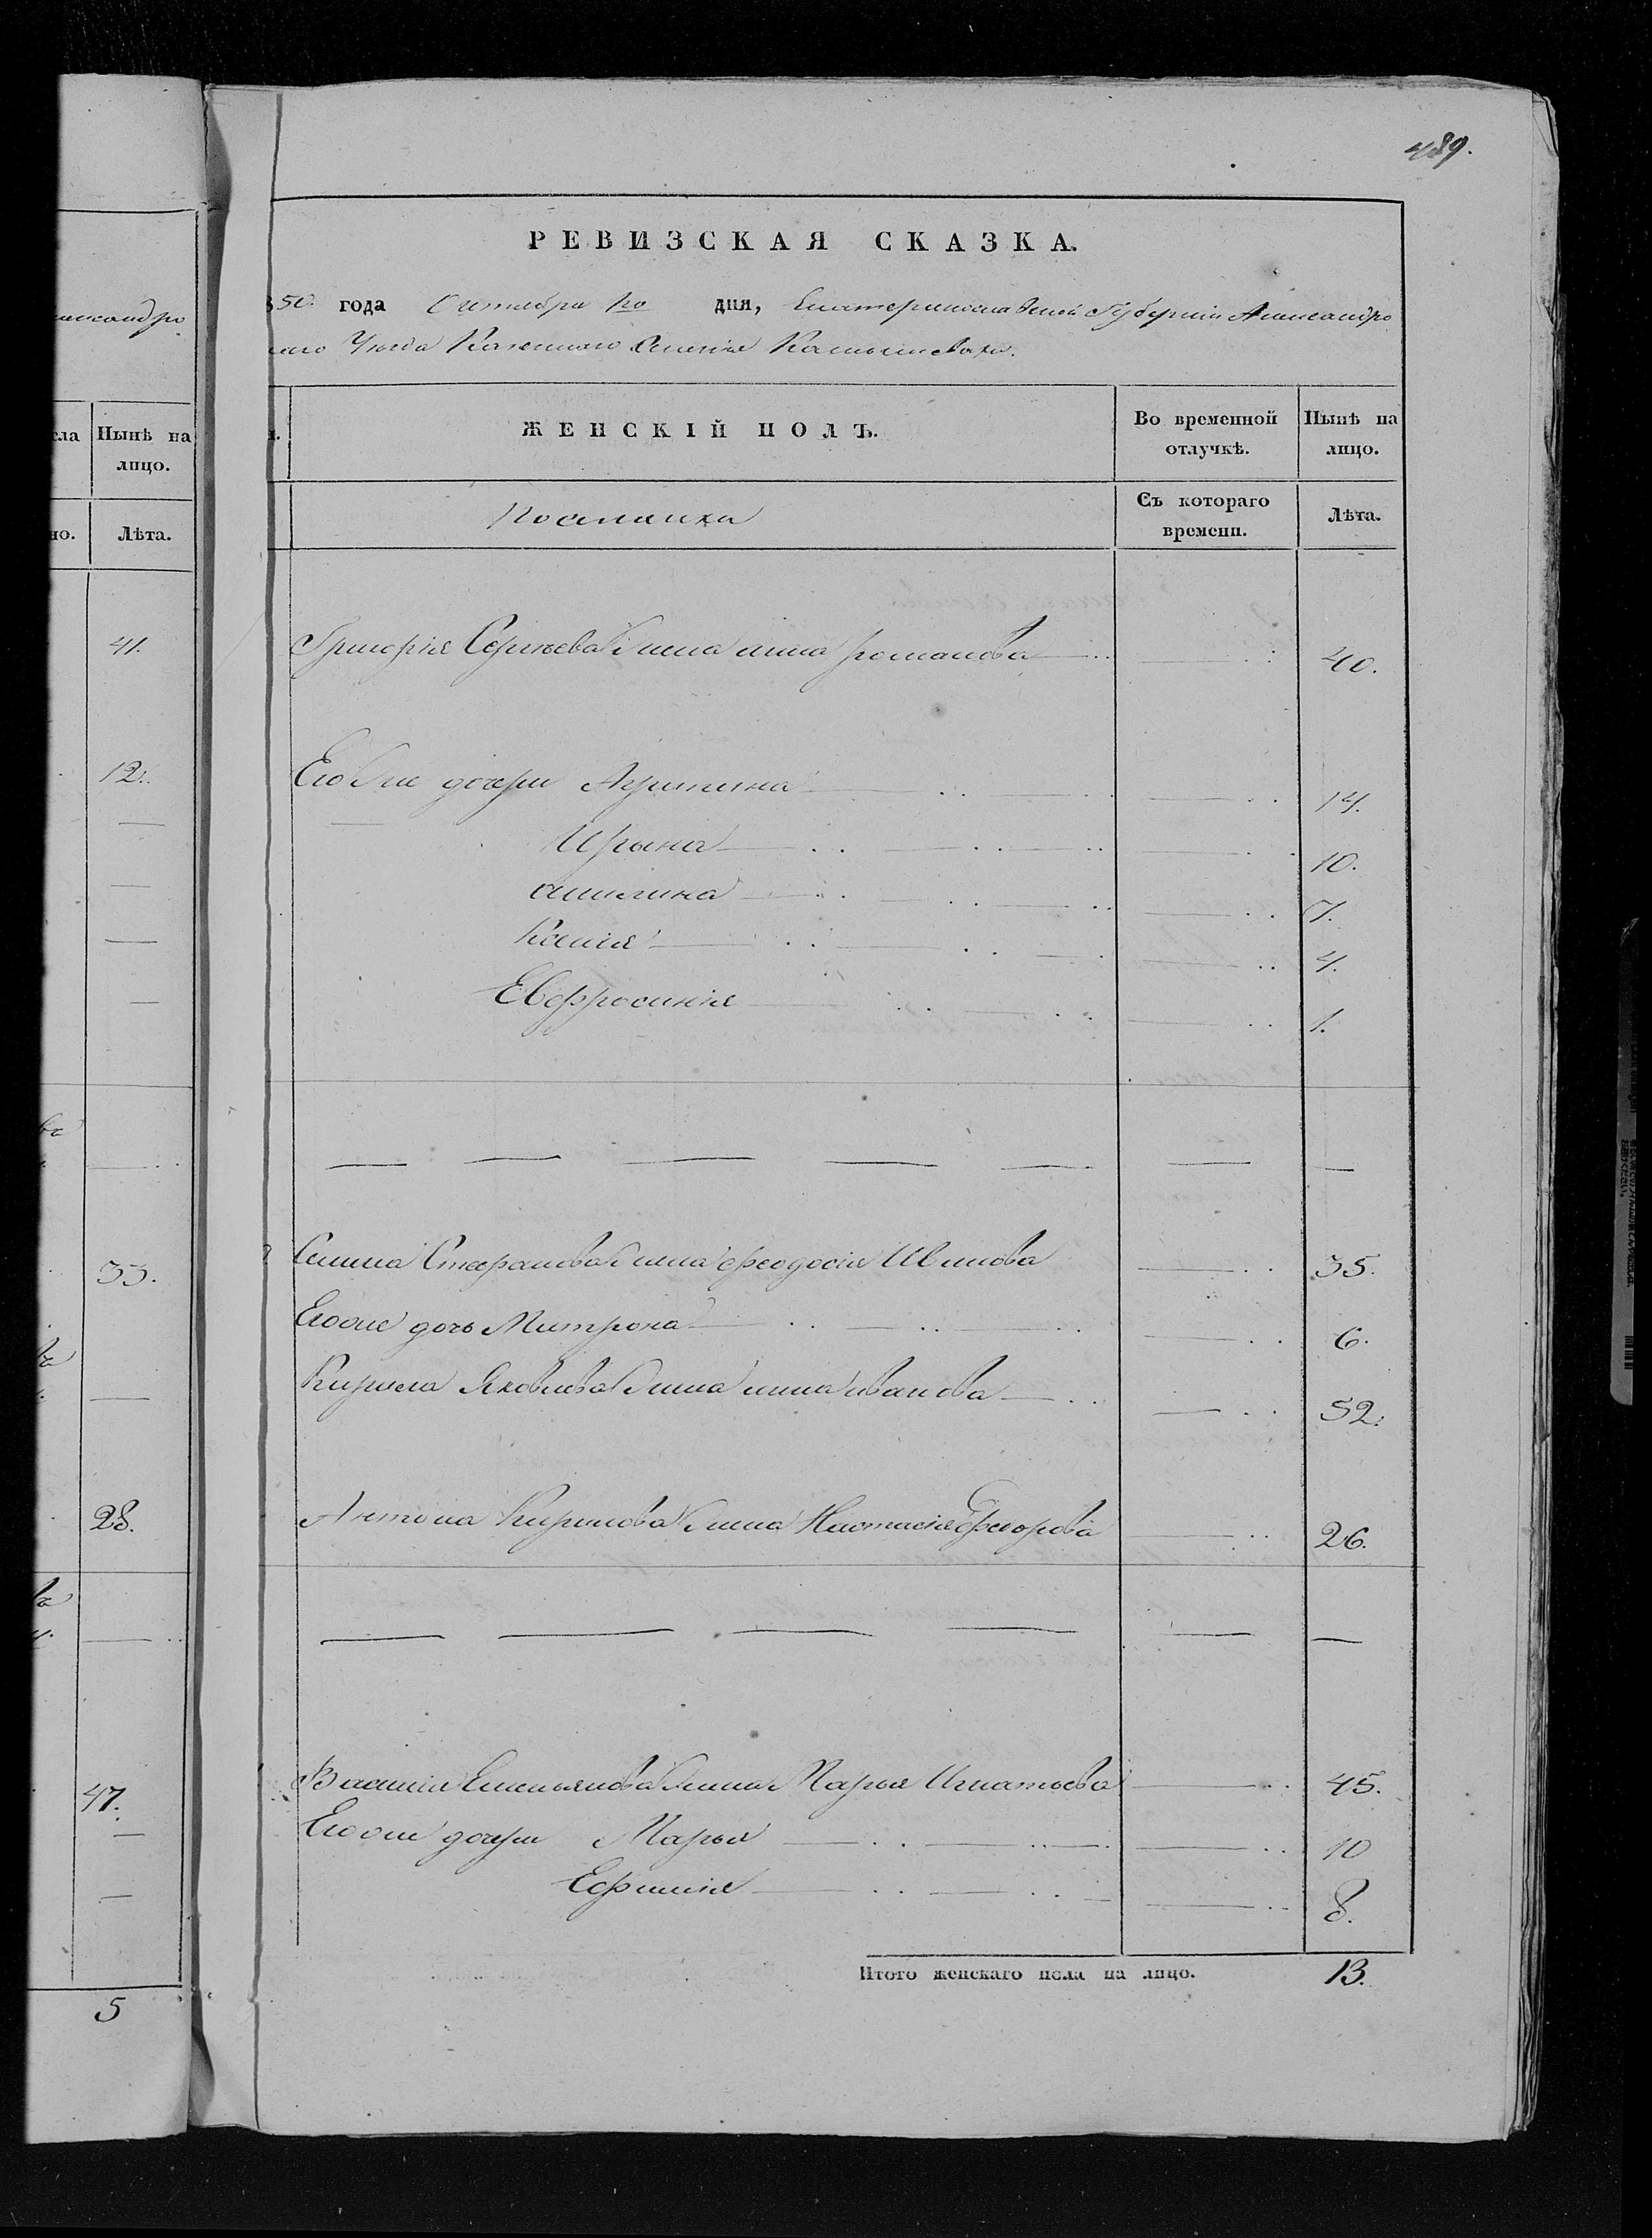 489.
РЕВИЗСКАЯ СКАЗКА.
850 года Октября дня, Екатеринославской Губернии Александро
Уезда Казенного Селения Камышевахи.
ЖЕНСКІЙ ПОЛЪ.
Во временной отлучкѣ.
Нынѣ на лицо.
Поселянка
Съ котораго времени.
Лѣта.
Григорія Сергѣева жена анна романова 40.
Его же дочери Агрипина 14.
Ирына 10.
акилина 7.
Ксенія 4.
Евфросинія 1.
Стефанова жена феодосія Иванова 35.
Его же дочь Матрона 6.
Кирила Яковлева жена анна иванова 52.
Антона Кирилова жена Настасія Федорова 26.
Василія Емельянова жена Марья Игнатьева 45.
Его же дочери Марья 10
Ефимія 8.
Итого женскаго пола на лицо. 13.
ександро
сла
Нынѣ на лицо.
но.
Лѣта.
41.
12.
33.
28.
47.
5